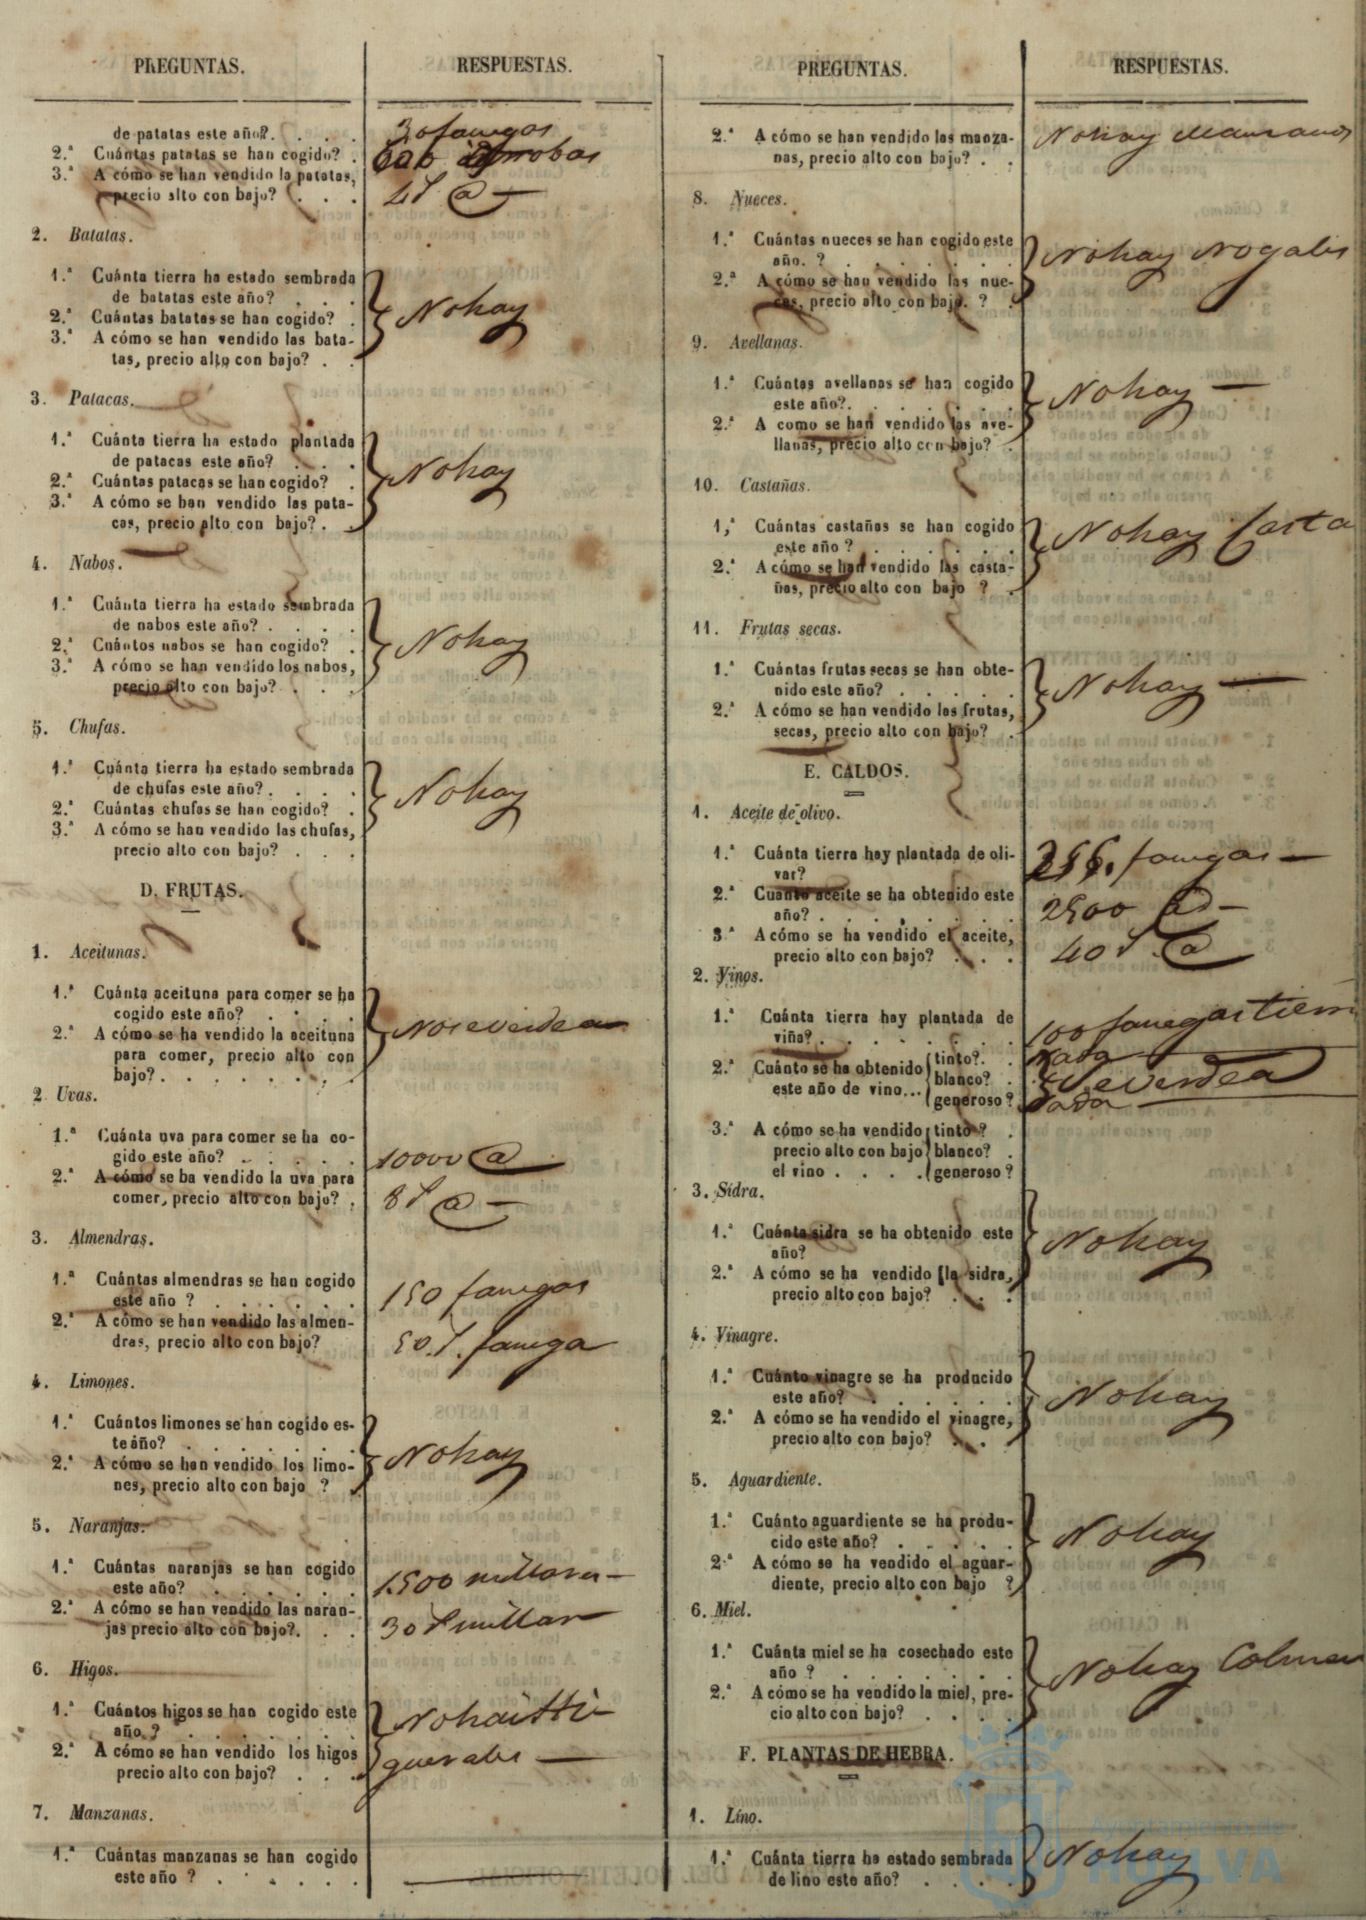 PREGUNTAS.
RESPUESTAS.
de patatas este año?. . . .
30 fanegas
2.ª Cuántas patatas se han cogido? .
600 arrobas
3.ª A cómo se han vendido la patatas,
precio alto con bajo? . . .
4 @
2. Batatas.
1.ª Cuánta tierra ha estado sembrada
de batatas este año? . . .
2.ª Cuántas batatas se han cogido? .
No hay
3.ª A cómo se han vendido las bata-
tas, precio alto con bajo? . .
3. Patacas.
1.ª Cuánta tierra ha estado plantada
de patacas este año? . . .
2.ª Cuántas patacas se han cogido? .
No hay
3.ª A cómo se han vendido las pata-
cas, precio alto con bajo? . .
4. Nabos.
1.ª Cuánta tierra ha estado sembrada
de nabos este año? . . . .
2.ª Cuántos nabos se han cogido? .
No hay
3.ª A cómo se han vendido los nabos,
precio alto con bajo? . . .
5. Chufas.
1.ª Cuánta tierra ha estado sembrada
de chufas este año? . . . .
2.ª Cuántas chufas se han cogido? .
No hay
3.ª A cómo se han vendido las chufas,
precio alto con bajo? . . .
D. FRUTAS.
1. Aceitunas.
1.ª Cuánta aceituna para comer se ha
cogido este año? . . . .
2.ª A cómo se ha vendido la aceituna
No se verdea
para comer, precio alto con
bajo? . . . . . . .
2 Uvas.
1.ª Cuánta uva para comer se ha co-
gido este año? . . . . .
10000 @
2.ª A cómo se ha vendido la uva para
comer, precio alto con bajo? .
8 @
3. Almendras.
1.ª Cuántas almendras se han cogido
este año ? . . . . . .
150 fanegas
2.ª A cómo se han vendido las almen-
dras, precio alto con bajo?
50 fanega
4. Limones.
1.ª Cuántos limones se han cogido es-
te año? . . . . . . .
No hay
2.ª A cómo se han vendido los limo-
nes, precio alto con bajo ?
5. Naranjas.
1.ª Cuántas naranjas se han cogido
este año? . . . . . .
1.500 millares
2.ª A cómo se han vendido las naran-
jas precio alto con bajo?. . .
30 millar
6. Higos.
1.ª Cuántos higos se han cogido este
año ? . . . . . . .
2.ª A cómo se han vendido los higos
precio alto con bajo? . . .
7. Manzanas.
1.ª Cuántas manzanas se han cogido
este año ? . . . . . .
PREGUNTAS.
RESPUESTAS.
2.ª A cómo se han vendido las manza-
nas, precio alto con bajo? . .
No hay Manzanos
8. Nueces.
1.ª Cuántas nueces se han cogido este
año. ? . . . . . . .
No hay Nogales
2.ª A cómo se han vendido las nue-
ces, precio alto con bajo. ? .
9. Avellanas.
1.ª Cuántas avellanas se han cogido
este año?. . . . . . .
No hay
2.ª A como se han vendido las ave-
llanas, precio alto con bajo? .
10. Castañas.
1,ª Cuántas castañas se han cogido
este año ? . . . . . .
No hay Casta
2.ª A cómo se han vendido las casta-
ñas, precio alto con bajo ? .
11. Frutas secas.
1.ª Cuántas frutas secas se han obte-
nido este año? . . . . .
No hay
2.ª A cómo se han vendido las frutas,
secas, precio alto con bajo? .
E. CALDOS.
1. Aceite de olivo.
1.ª Cuánta tierra hay plantada de oli-
var?
fanegas
2.ª Cuanto aceite se ha obtenido este
año? . . . . . . . .
2500 @s
3.ª A cómo se ha vendido el aceite,
precio alto con bajo? . . .
40 @
2. Vinos.
1.ª Cuánta tierra hay plantada de
viña? . . . . . . . .
100 fanegas tierra
2.ª Cuánto se ha obtenido este año de vino... tinto?. .
Nada
blanco? .
Se verdea
generoso?
Nada
3.ª A cómo se ha vendido precio alto con bajo el vino . . . . tinto? .
blanco? .
generoso?
3. Sidra.
1.ª Cuánta sidra se ha obtenido este
año?
No hay
2.ª A cómo se ha vendido la sidra,
precio alto con bajo? . . .
4. Vinagre.
1.ª Cuánto vinagre se ha producido
este año? . . . . . .
No hay
2.ª A cómo se ha vendido el vinagre,
precio alto con bajo? . . .
5. Aguardiente.
1.ª Cuánto aguardiente se ha produ-
cido este año? . . . . .
No hay
2.ª A cómo se ha vendido el aguar-
diente, precio alto con bajo ?
6. Miel.
1.ª Cuánta miel se ha cosechado este
año ? . . . . . . .
No hay Colmen
2.ª A cómo se ha vendido la miel, pre-
cio alto con bajo? . . . .
F. PLANTAS DE HEBRA.
1. Lino.
1.ª Cuánta tierra ha estado sembrada
de lino este año? . . . .
No hay
Ayuntamiento de
HUELVA